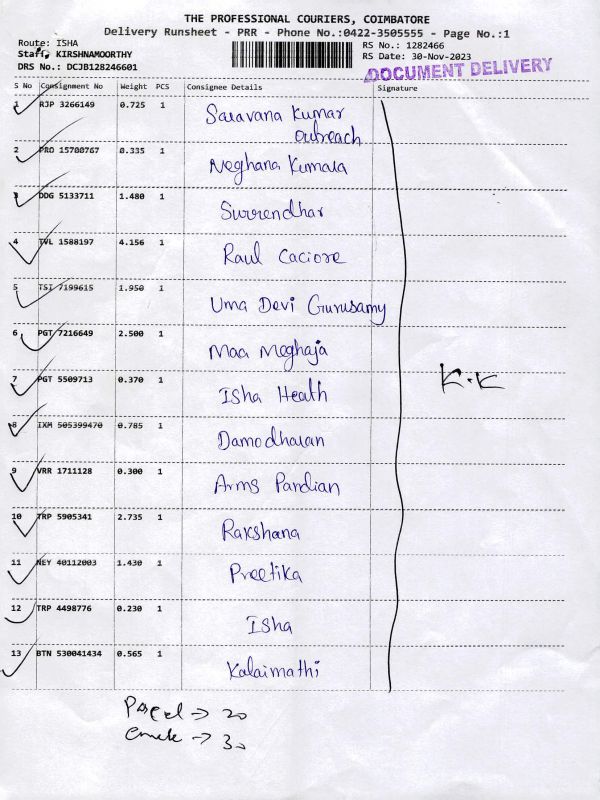 THE PROFESSIONAL COURIERS, COIMBATORE
Delivery Runsheet - PRR - Phone No.:0422-3505555 - Page No.:1
Route: ISHA
Staff: KIRSHNAMOORTHY
DRS No.: DCJB128246601
RS No.: 1282466
RS Date: 30-Nov-2023
DOCUMENT DELIVERY
S No Consignment No Weight PCS Consignee Details Signature
1 RJP 3266149 0.725 1 Saravana Kumar
Outreach
2 PRO 15700767 0.335 1 Meghana Kumala
3 DDG 5133711 1.480 1 Surrendhar
4 TVL 1588197 4.156 1 Raul Caciore
5 TSI 7199615 1.950 1 Uma Devi Gurusamy
6 PGT 7216649 2.500 1 Maa Meghaja
7 PGT 5509713 0.370 1 Isha Heath
K.K
8 IXM 505399470 0.785 1 Damodharan
9 VRR 1711128 0.300 1 Arms Pandian
10 TRP 5905341 2.735 1 Rakshana
11 NEY 40112003 1.430 1 Preetika
12 TRP 4498776 0.230 1 Isha
13 BTN 530041434 0.565 1 Kalaimathi
→ 20
→ 30